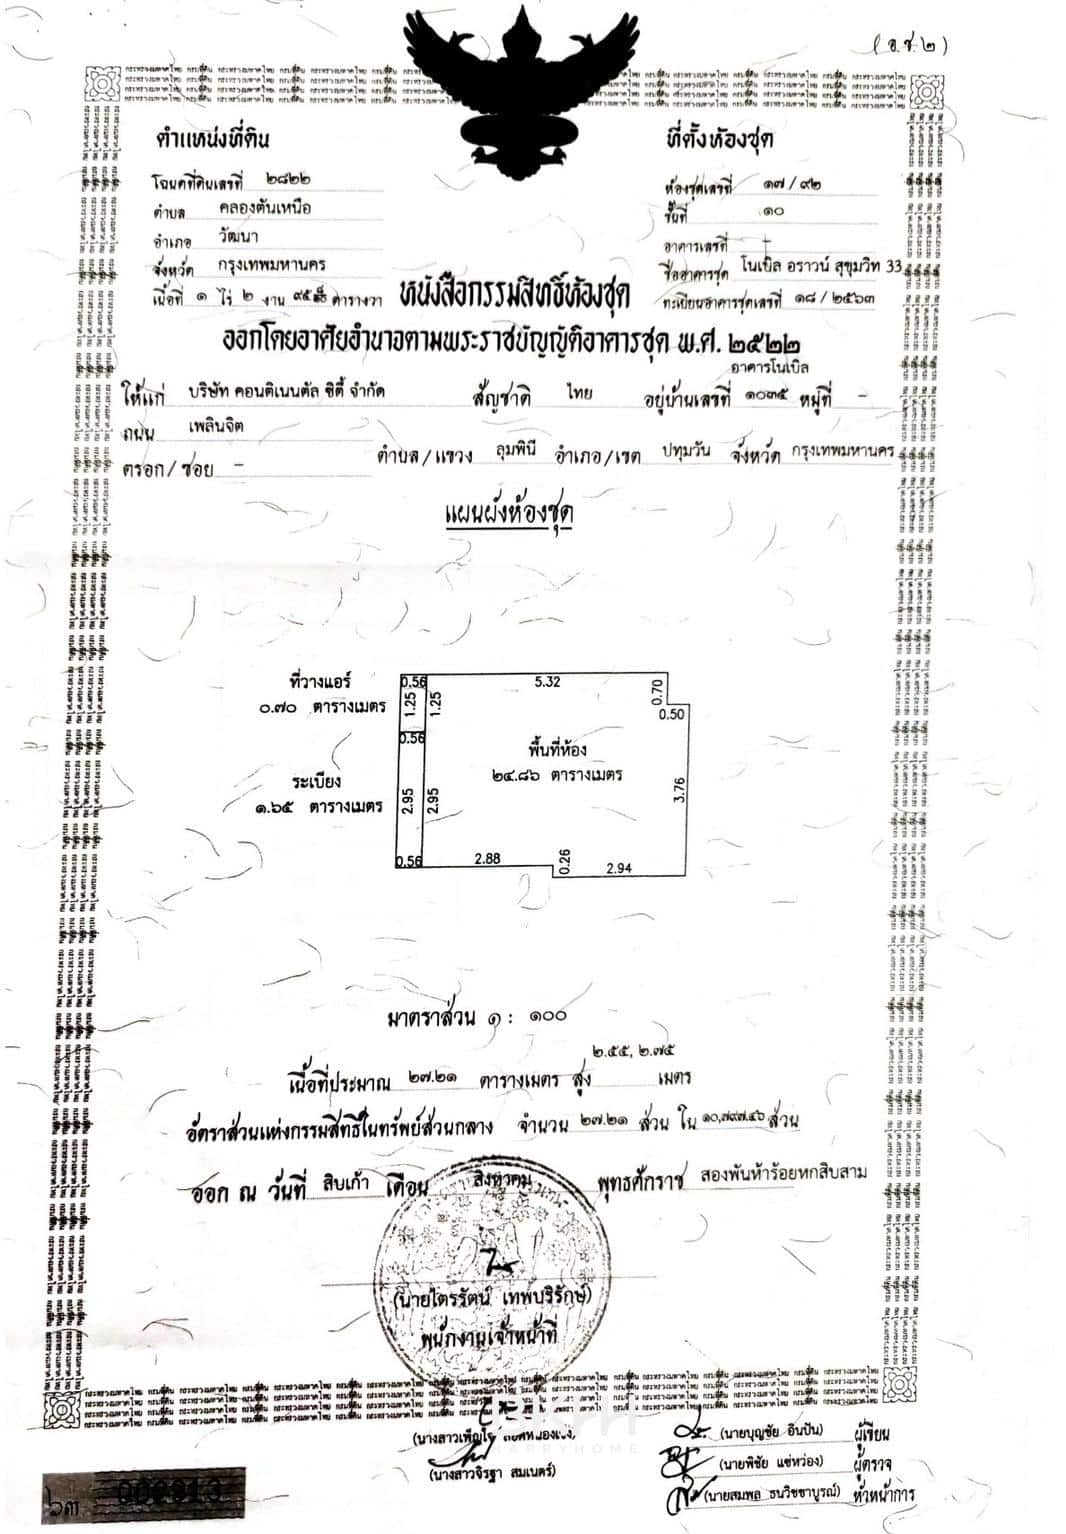 (อ.ช.๒)
ตำแหน่งที่ดิน
โฉนดที่ดินเลขที่ ๒๘๒๒
ตำบล คลองตันเหนือ
อำเภอ วัฒนา
จังหวัด กรุงเทพมหานคร
เนื้อที่ ๑ ไร่ ๒ งาน ตารางวา
ที่ตั้งห้องชุด
ห้องชุดเลขที่ ๑๗/๙๒
ชั้นที่ ๑๐
อาคารเลขที่ -
ชื่ออาคารชุด โนเบิล อราวน์ สุขุมวิท 33
ทะเบียนอาคารชุดเลขที่ ๑๘/๒๕๖๓
หนังสือกรรมสิทธิ์ห้องชุด
ออกโดยอาศัยอำนาจตามพระราชบัญญัติอาคารชุด พ.ศ. ๒๕๒๒
อาคารโนเบิล
ให้แก่ บริษัท คอนติเนนตัล ซิตี้ จำกัด สัญชาติ ไทย อยู่บ้านเลขที่ ๑๐๓๕ หมู่ที่ -
ถนน เพลินจิต
ตรอก/ซอย - ตำบล/แขวง ลุมพินี อำเภอ/เขต ปทุมวัน จังหวัด กรุงเทพมหานคร
แผนผังห้องชุด
ที่วางแอร์
๐.๗๐ ตารางเมตร
0.56
1.25
1.25
5.32
0.70
0.50
0.56
พื้นที่ห้อง
๒๔.๘๖ ตารางเมตร
ระเบียง
๑.๖๕ ตารางเมตร
2.95
2.95
3.76
0.56
2.88
0.26
2.94
มาตราส่วน ๑ : ๑๐๐
๒.๕๕, ๒.๗๕
เนื้อที่ประมาณ ๒๗.๒๑ ตารางเมตร สูง เมตร
อัตราส่วนแห่งกรรมสิทธิ์ในทรัพย์ส่วนกลาง จำนวน ๒๗.๒๑ ส่วน ใน ส่วน
ออก ณ วันที่ สิบเก้า เดือน สิงหาคม พุทธศักราช สองพันห้าร้อยหกสิบสาม
(นายไตรรัตน์ เทพบริรักษ์)
พนักงานเจ้าหน้าที่
(นางสาวจิรฐา สมเนตร์)
(นายบุญชัย อินปัน) ผู้เขียน
(นายพิชัย แซ่หว่อง) ผู้ตรวจ
(นายสมพล ธนวิชชาบูรณ์) หัวหน้าการ
HAPPYHOME
๖๓